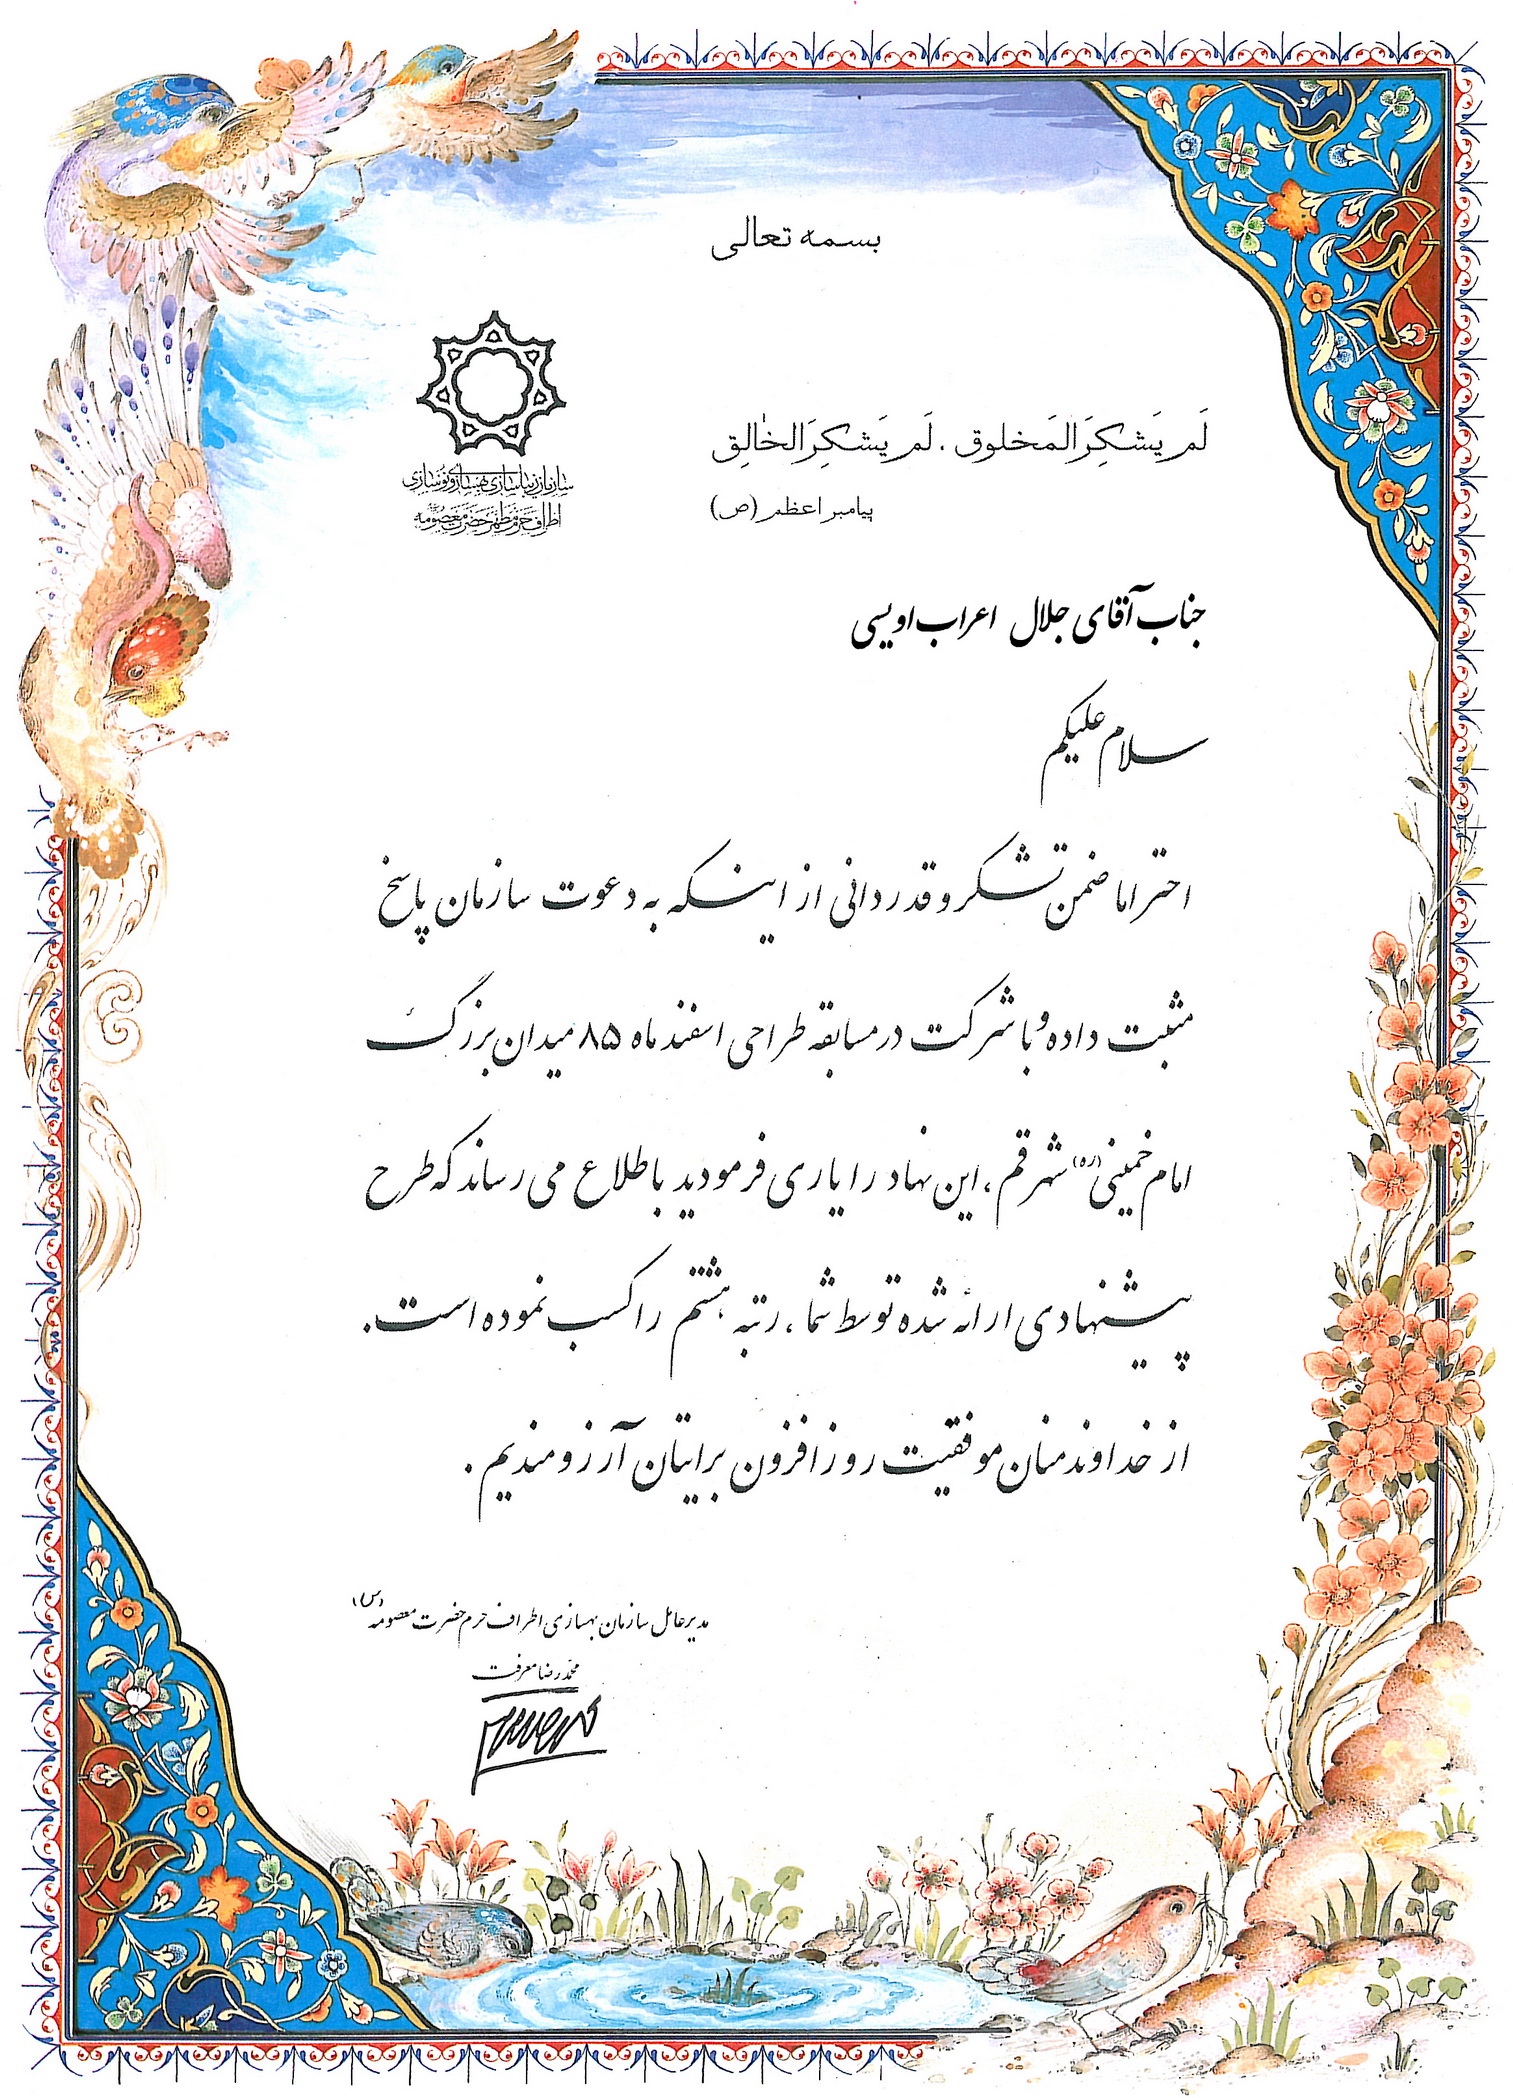 بسمه تعالی
سازمان زیباسازی بهسازی و نوسازی
اطراف حرم مطهر حضرت معصومه
لَم یَشکِرَ المَخلوق . لَم یَشکِرَ الخٰالِق
پیامبر اعظم (ص)
جناب آقای جلال اعراب اویسی
سلام علیکم
احتراما ضمن تشکر و قدردانی از اینکه به دعوت سازمان پاسخ
مثبت داده و با شرکت در مسابقه طراحی اسفند ماه ۸۵ میدان بزرگ
امام خمینی (ره) شهر قم ، این نهاد را یاری فرمودید باطلاع می رساند که طرح
پیشنهادی ارائه شده توسط شما ، رتبه هشتم را کسب نموده است .
از خداوند منان موفقیت روز افزون برایتان آرزومندیم .
مدیر عامل سازمان بهسازی اطراف حرم حضرت معصومه (س)
محمد رضا معرفت